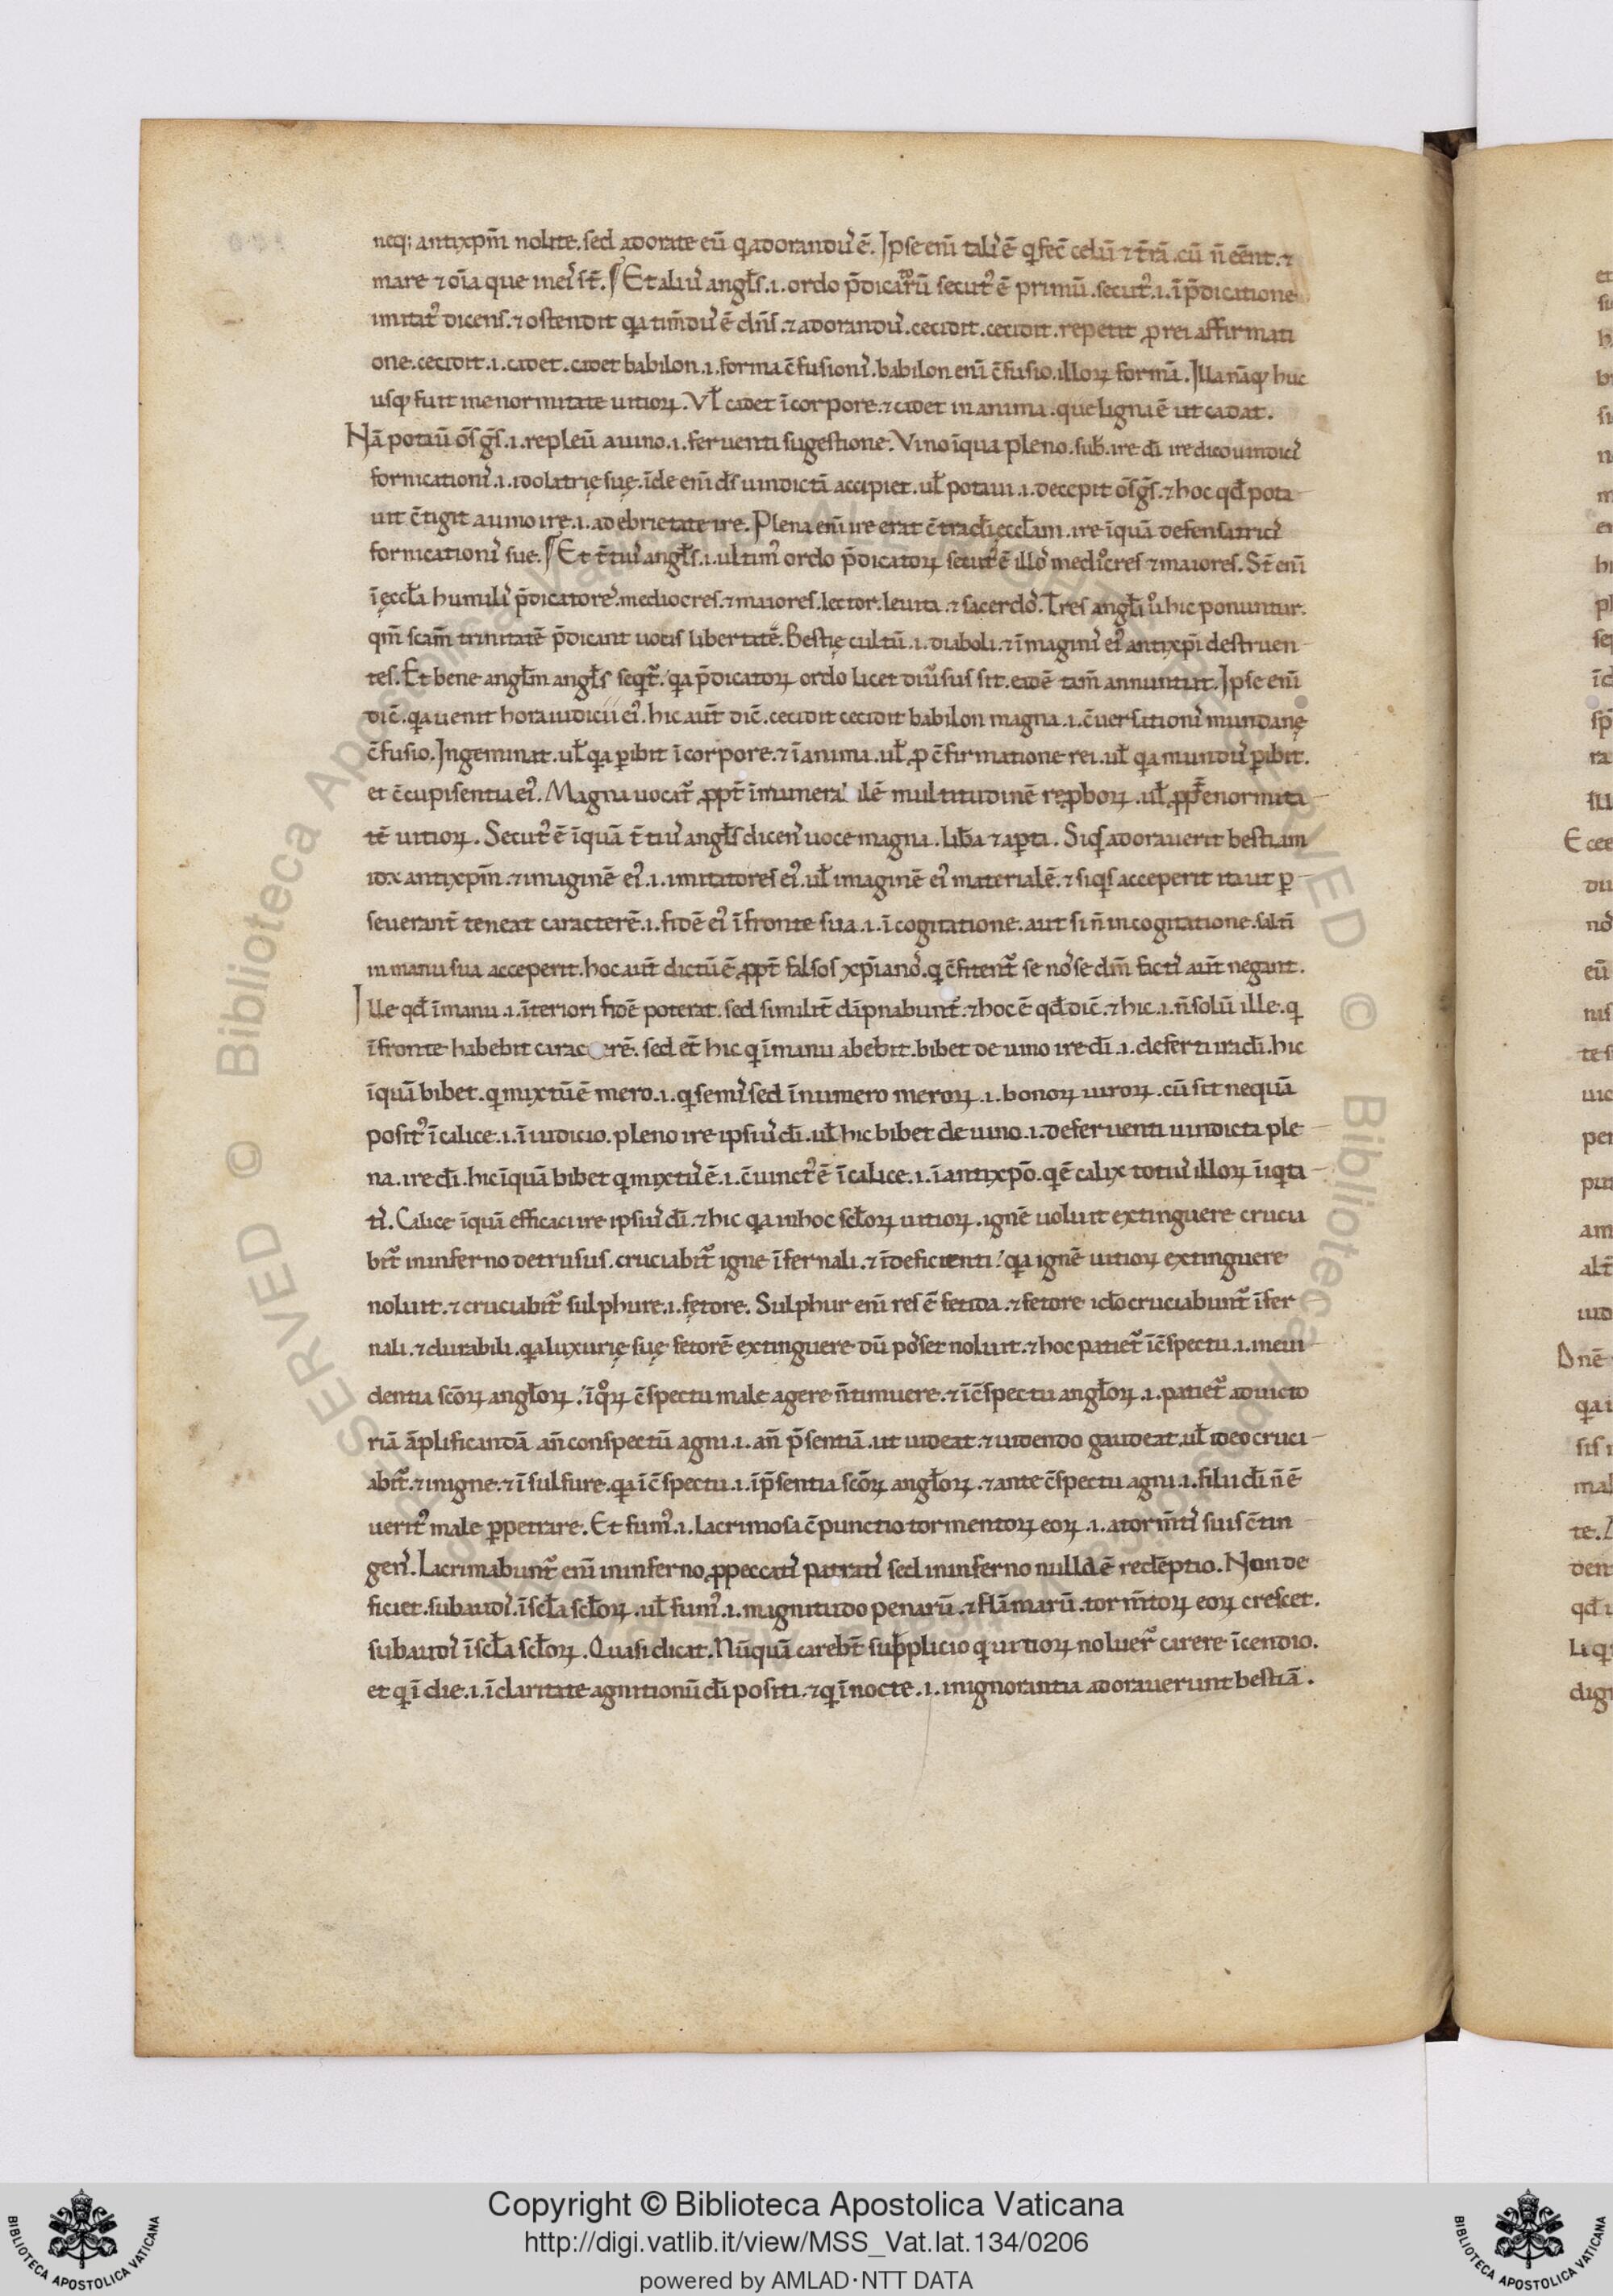 neq; antixp̄m nolite. sed adorate eū q adorandu᷒ ē. Ipse eni᷒ tali᷒ ē q fec̄ celū ⁊ t̄rā. cū n̄ eēnt. ⁊
mare ⁊ oīa que in ei᷒ st̄. Et aliu᷒ angl̄s .i. ordo p̄dicatorū secut᷒ ē primū. secut᷒ .i. ī p̄dicatione
imitat᷒ dicens. ⁊ ostendit qa tim̄du᷒ ē dn̄s. ⁊ adorandu᷒. cecidit. cecidit. repetit p rei affirmati
one. cecidit .i. cadet. cadet babilon .i. forma c̄fusioni᷒. babilon eni᷒ c̄fusio. illoꝝ formā. Illa nāqꝫ huc
usqꝫ fuit in enormitate uitioꝝ. Vl̄ cadet ī corpore. ⁊ cadet in anima. que ligna ē ut cadat.
Nā potau᷒ os̄ gs̄ .i. repleu᷒ a uino .i. feruenti sugestione. Vino īqua pleno. sub. ire dī ire dico uindici᷒
fornicationi᷒ .i. idolatrię suę. īde eni᷒ ds̄ uindictā accipiet. ul̄ potaui .i. decepit os̄ gs̄. ⁊ hoc qd̄ pota
uit c̄tigit a uino ire .i. ad ebrietate ire. Plena eni᷒ ire erat c̄tra dī ęccl̄am. ire īquā defensatrici᷒
fornicationi᷒ sue. Et t̄tiu᷒ angl̄s .i. ultim᷒ ordo p̄dicatoꝝ secut᷒ ē illo᷒ mediocres ⁊ maiores. St̄ eni᷒
ī ęccl̄a humili᷒ p̄dicatore᷒. mediocres. ⁊ maiores. lector. leuita. ⁊ sacerdo᷒. Tres angl̄i u᷒ hic ponuntur.
qm̄ scam̄ trinitatē p̄dicant uocis libertatē. Bestię cultū .i. diaboli. ⁊ īmagini᷒ ei᷒ antixp̄i destruen
tes. Et bene angl̄m angl̄s seqt̄. qa p̄dicatoꝝ ordo licet diu᷒sus sit. eadē tam̄ annuntiat. Ipse eni᷒
dic̄. qa uenit hora iudicii ei᷒. hic aut̄ dic̄. cecidit cecidit babilon magna .i. c̄uersationi᷒ mundanę
c̄fusio. Ingeminat. ul̄ qa pibit ī corpore. ⁊ ī anima. ul̄ p c̄firmatione rei. ul̄ qa mundu᷒ pibit.
et c̄cupisentia ei᷒. Magna uocat᷒ ppt̄ īnumera ilē multitudinē repboꝝ. ul̄ ppt̄ enormita
tē uitioꝝ. Secut᷒ ē īquā t̄tiu᷒ angl̄s dicen᷒ uoce magna. lib̄a ⁊ apta. Siqs adorauerit bestiam
id. antixp̄m. ⁊ imaginē ei᷒ .i. imitatores ei᷒. ul̄ imaginē ei᷒ materialē. ⁊ siqs acceperit ita ut p
seuerant̄ teneat caracterē .i. fidē ei᷒ ī fronte sua .i. ī cogitatione. aut si n̄ in cogitatione. salti᷒
in manu sua acceperit. hoc aut̄ dictū ē ppt̄ falsos xp̄iano᷒. q c̄fitent᷒ se nosse dm̄ facti᷒ aut̄ negant.
Ille qd̄ īmanu .i. īteriori fidē poterat. sed similit̄ dāpnabunt᷒. ⁊ hoc ē qd̄ dic̄. ⁊ hic .i. n̄ solū ille. q
ī fronte habebit carac erē. sed et̄ hic q īmanu abebit. bibet de uino ire dī .i. de ferti ira dī. hic
īquā bibet. q mixtū ē mero .i. q semi᷒ sed ī numero meroꝝ .i. bonoꝝ uiroꝝ. cū sit nequā
posit᷒ ī calice .i. ī iudicio. pleno ire ipsiu᷒ dī. ul̄ hic bibet de uino .i. de feruenti uindicta ple
na. ire dī. hic īquā bibet q mixtu᷒ ē .i. c̄iunct᷒ ē ī calice .i. ī antixp̄o. q ē calix totiu᷒ illoꝝ īiqta
ti᷒. Calice īquā efficaci ire ipsiu᷒ dī. ⁊ hic qa in hoc scl̄oꝝ uitioꝝ. ignē uoluit extinguere crucia
bit᷒ in inferno detrusus. cruciabit᷒ igne īfernali. ⁊ īdeficienti. qa ignē uitioꝝ extinguere
noluit. ⁊ cruciabit᷒ sulphure .i. fętore. Sulphur eni᷒ res ē fetida. ⁊ fetore id̄o cruciabunt᷒ īfer
nali. ⁊ durabili. qa luxurię suę fetorē extinguere dū posset noluit. ⁊ hoc patiet᷒ ī c̄spectu .i. in eui
dentia scōꝝ angl̄oꝝ. ī qoꝝ c̄spectu male agere n̄ timuere. ⁊ ī c̄spectu angl̄oꝝ .i. patiet᷒ ad uicto
riā āplificandā an̄ conspectū agni .i. an̄ p̄sentiā. ut uideat. ⁊ uidendo gaudeat. ul̄ ideo cruci
abit᷒. ⁊ in igne. ⁊ ī sulfure. qa ī c̄spectu .i. ī p̄sentia scōꝝ angl̄oꝝ. ⁊ ante c̄spectu agni .i. filii dī n̄ ē
uerit᷒ male ppetrare. Et fum᷒ .i. lacrimosa c̄punctio tormentoꝝ eoꝝ .i. a torm̄ti᷒ suis c̄tin
gen᷒. Lacrimabunt᷒ eni᷒ in inferno. p peccati᷒ patrati᷒ sed in inferno nulla ē redēptio. Non de
ficiet. subaudi᷒. ī scl̄a scl̄oꝝ. ul̄ fum᷒ .i. magnitudo penarū. ⁊ flāmarū. torm̄toꝝ eoꝝ crescet.
subaudi᷒ ī scl̄a scl̄oꝝ. Quasi dicat. Nūquā carebt̄ supplicio q uitioꝝ noluer᷒ carere īcendio.
et q ī die .i. ī claritate agnitioni᷒ dī positi. ⁊ q ī nocte .i. in ignorantia adorauerunt bestiā.
Copyright © Biblioteca Apostolica Vaticana
http://digi.vatlib.it/view/MSS_Vat.lat.134/0206
powered by AMLAD·NTT DATA
BIBLIOTECA APOSTOLICA VATICANA
BIBLIOTECA APOSTOLICA VATICANA